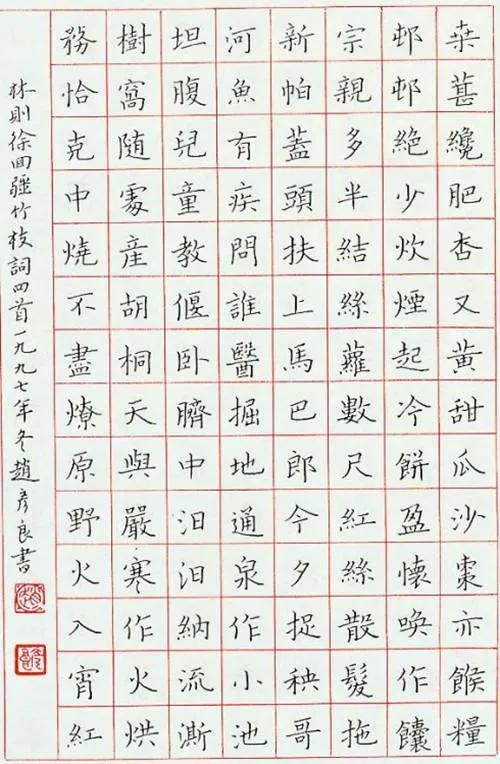 桒葚纔肥杏又黃甜瓜沙棗亦餱糧
邨邨絕少炊煙起冷餅盈懷喚作饢
宗親多半結絲蘿數尺紅絲散髮拖
新帕蓋頭扶上馬巴郎今夕捉秧哥
河魚有疾問誰醫掘地通泉作小池
坦腹兒童教偃卧臍中汨汨納流澌
樹窩隨處產胡桐天與嚴寒作火烘
務恰克中燒不盡燎原野火入宵紅
林則徐回疆竹枝詞四首一九九七年冬趙彥良書